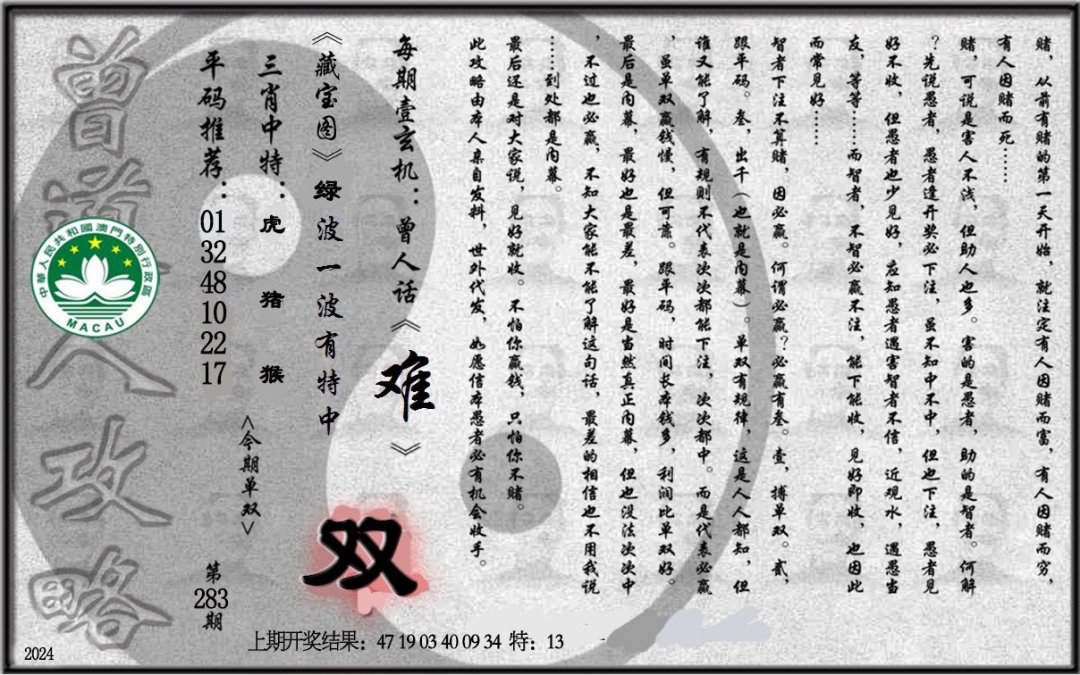 赌，从前有赌的第一天开始，就注定有人因赌而富，有人因赌而穷，
有人因赌而死……
赌，可说是害人不浅，但助人也多。害的是愚者，助的是智者。何解
？先说愚者，愚者逢开奖必下注，虽不知中不中，但也下注，愚者见
好不收，但愚者也少见好，应知愚者遇害智者不信，近观水，遇愚当
友，等等……而智者，不智必赢不注，能下能收，见好即收，也因此
而常见好……
智者下注不算赌，因必赢。何谓必赢？必赢有叁。壹，搏单双。贰，
跟平码。叁，出千（也就是内幕）。单双有规律，这是人人都知，但
谁又能了解，有规则不代表次次都能下注，次次都中。而是代表必赢
，虽单双赢钱慢，但可靠。跟平码，时间长本钱多，利润比单双好。
最后是内幕，最好也是最差，最好是当然真正内幕，但也没法次次中
，不过也必赢，不知大家能不能了解这句话，最差的相信也不用我说
……到处都是内幕。
最后还是对大家说，见好就收。不怕你赢钱，只怕你不赌。
此攻略由本人亲自发料，世外代发，如愿信本愚者必有机会收手。
每期壹玄机：曾人话《难》
《藏宝图》绿波一波有特中
三肖中特：虎 猪 猴
平码推荐：01 32 48 10 22 17
<今期单双>
双
第283期
曾道人攻略
中華人民共和國澳門特別行政區
MACAU
上期开奖结果：47 19 03 40 09 34 特：13
2024